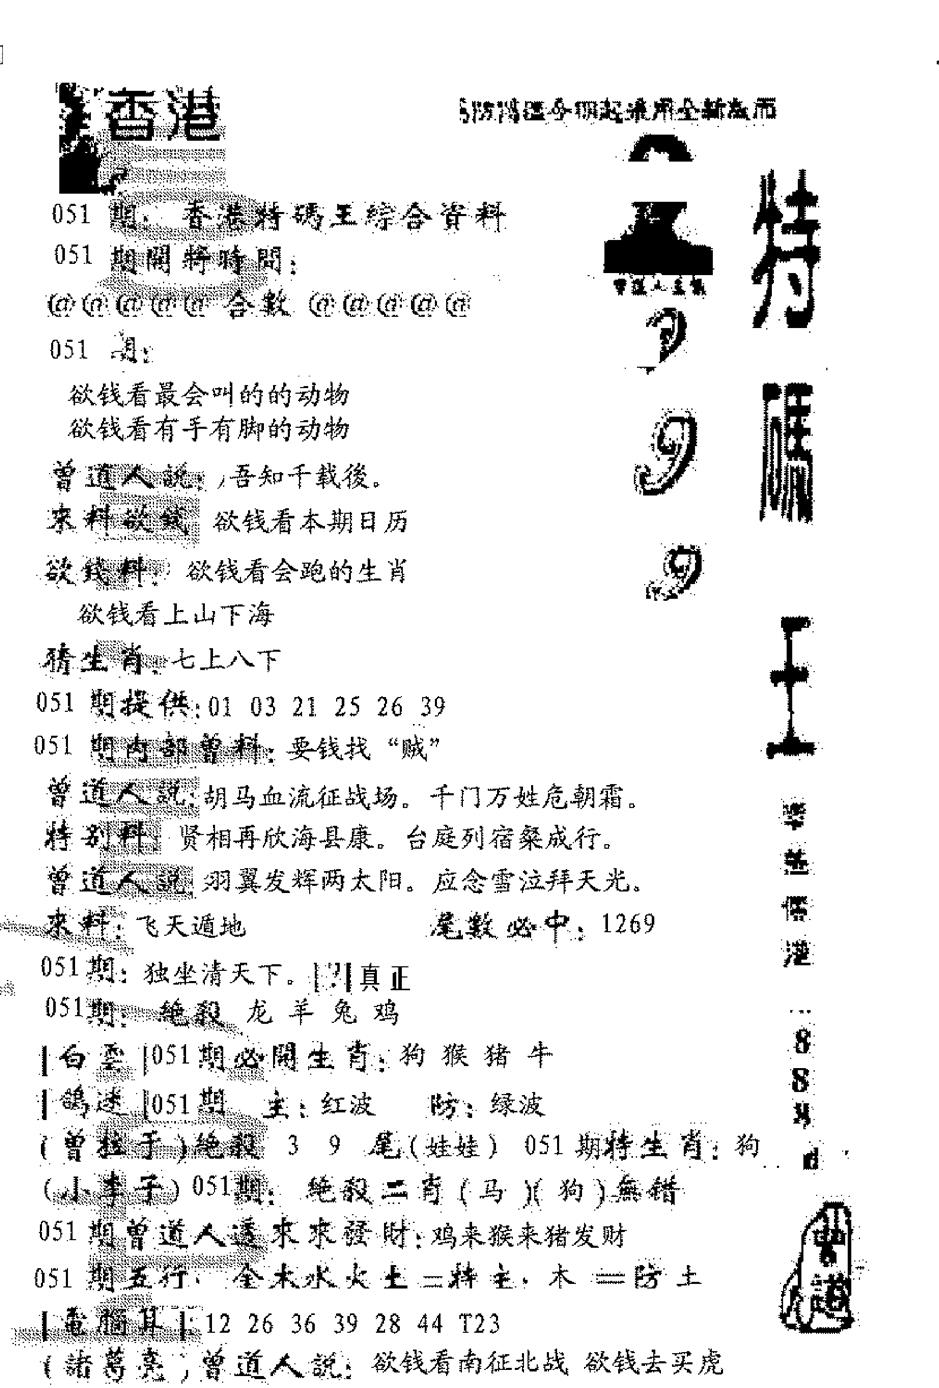 香港
防濤區今期起採用全新版面
051 期: 香港特碼王綜合資料
051 期開將時間:
@@@@@ 合數 @@@@@
051 期:
欲钱看最会叫的的动物
欲钱看有手有脚的动物
曾道人説: 吾知千载後。
來料欲錢 欲钱看本期日历
欲錢料: 欲钱看会跑的生肖
欲钱看上山下海
猜生肖: 七上八下
051 期提供: 01 03 21 25 26 39
051 期内部曾料: 要钱找“贼”
曾道人説: 胡马血流征战场。千门万姓危朝霜。
特别料: 贤相再欣海县康。台庭列宿粲成行。
曾道人説 羽翼发辉两太阳。应念雪泣拜天光。
來料: 飞天遁地 尾數必中: 1269
051期: 独坐清天下。|?|真正
051期: 絶殺 龙羊兔鸡
|白雲|051期必開生肖: 狗猴猪牛
|鴿迷|051期 主: 红波 防: 绿波
(曾拉于)絶殺 3 9 尾(娃娃) 051期特生肖: 狗
(小李子)051期: 絶殺二肖(马)(狗)無错
051期曾道人送來來發財: 鸡来猴来猪发财
051期五行: 金木水火土二特主: 木 二防土
|電腦算|: 12 26 36 39 28 44 T23
(諸葛亮)曾道人説: 欲钱看南征北战 欲钱去买虎
曾道人主氣
特
碼
王
港
888
曾道